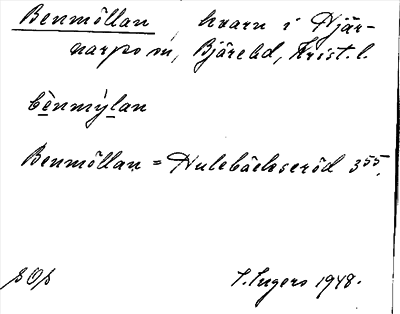 Benmöllan, kvarn i Hjär-
narps sn, Bjäre hd, Krist. l.
bènmýlan
Benmöllan = Hulebäckseröd 3⁵⁵.
S. Ingers 1948.